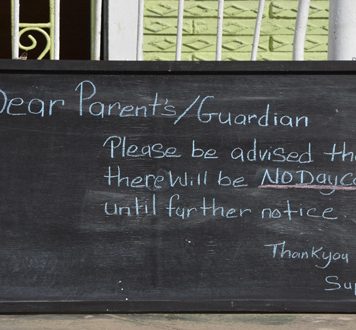 Dear Parent's/Guardian
Please be advised tha
there will be NO Dayca
until further notice.
Thankyou
Sup